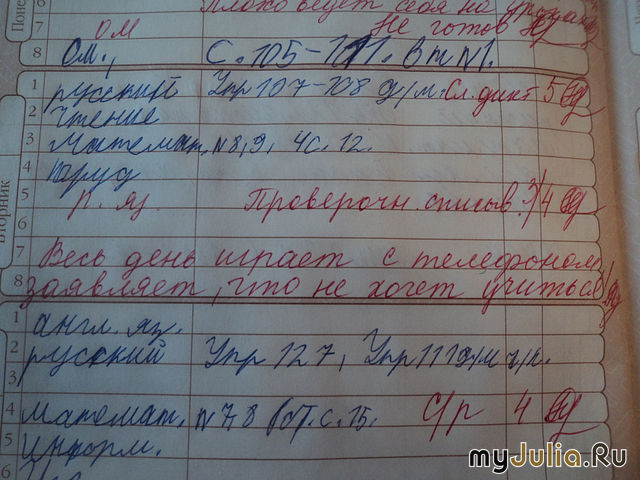 Плохо ведет себя на уроках
7 ом Не готов
8 ом., с. 105-111. вт №1.
1 русский Упр 107-108 д/м. Сл. дикт 5
2 чтение
3 Математ. №8,9, 4 с. 12.
4 труд
5 р. яз. Проверочн. списыв. 3/4
Вторник
7 Весь день играет с телефоном,
8 заявляет, что не хочет учиться
1 англ. яз.
2 русский Упр 127, Упр 111
3
4 математ. №7,8 с. 15. с/р 4
5 информ.
6
myJulia.Ru